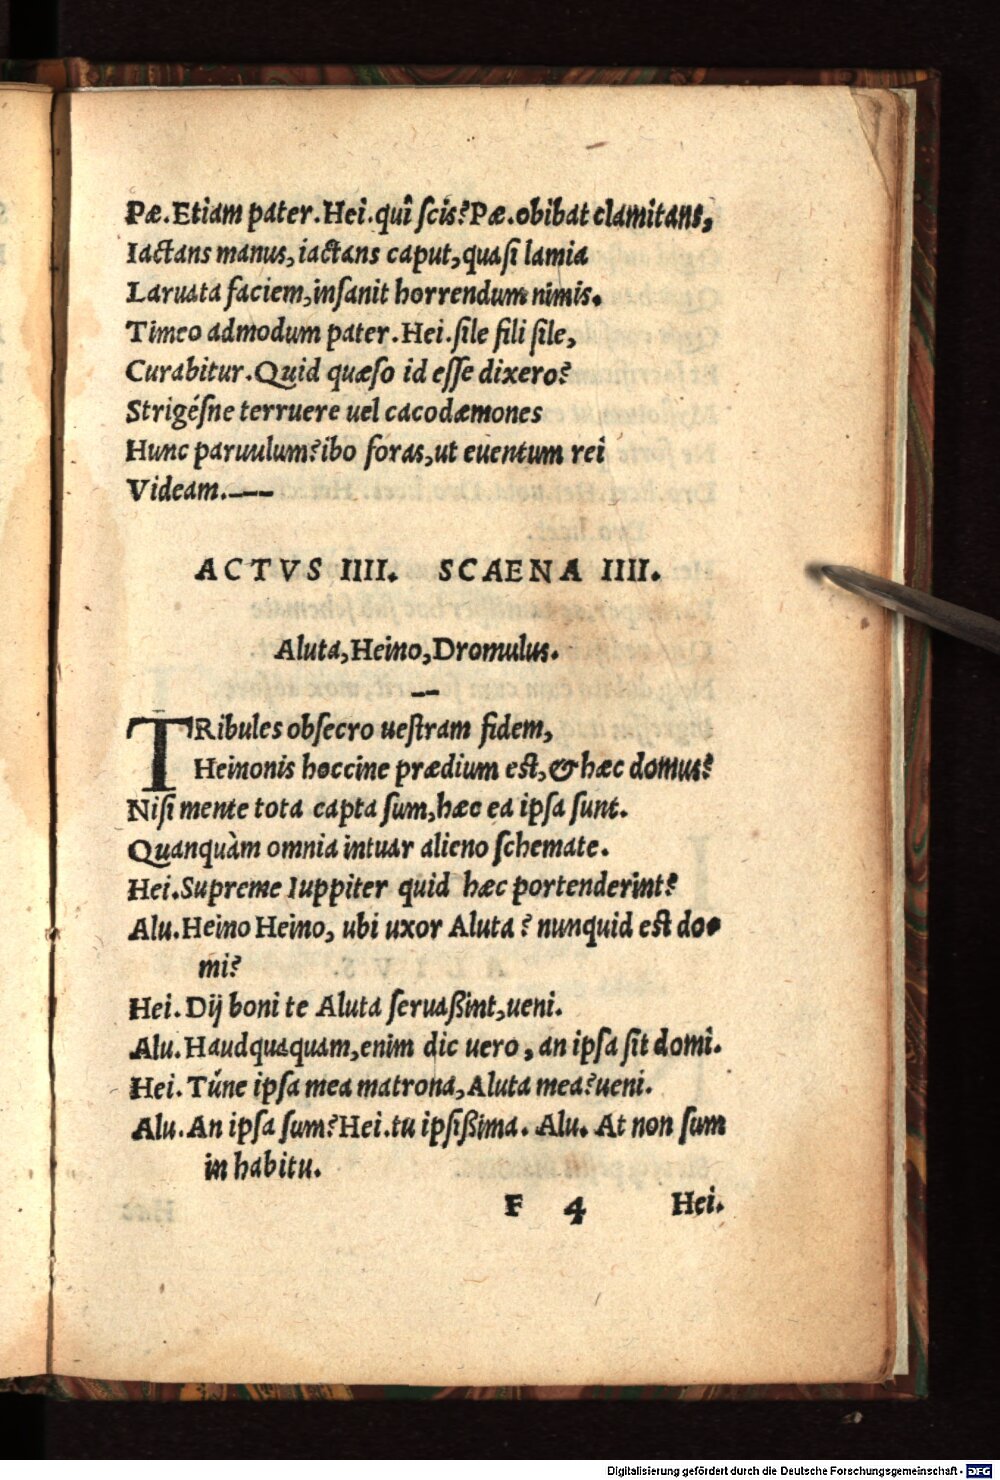 Pæ. Etiam pater. Hei. quî ſcis? Pæ. obibat clamitans,
Iactans manus, iactans caput, quaſi lamia
Laruata faciem, inſanit horrendum nimis.
Timeo admodum pater. Hei. ſile fili ſile,
Curabitur. Quid quæſo id eſſe dixero?
Strigéſne terruere uel cacodæmones
Hunc paruulum? ibo foras, ut euentum rei
Videam.——
ACTVS IIII. SCAENA IIII.
Aluta, Heino, Dromulus.
TRibules obſecro ueſtram fidem,
Heinonis hoccine prædium est, & hæc domus?
Niſi mente tota capta ſum, hæc ea ipſa ſunt.
Quanquàm omnia intuar alieno ſchemate.
Hei. Supreme Iuppiter quid hæc portenderint?
Alu. Heino Heino, ubi uxor Aluta? nunquid est do-
mi?
Hei. Dij boni te Aluta ſeruaßint, ueni.
Alu. Haudquaquam, enim dic uero, an ipſa ſit domi.
Hei. Túne ipſa mea matrona, Aluta mea? ueni.
Alu. An ipſa ſum? Hei. tu ipſißima. Alu. At non ſum
in habitu.
F 4 Hei.
Digitalisierung gefördert durch die Deutsche Forschungsgemeinschaft - DFG